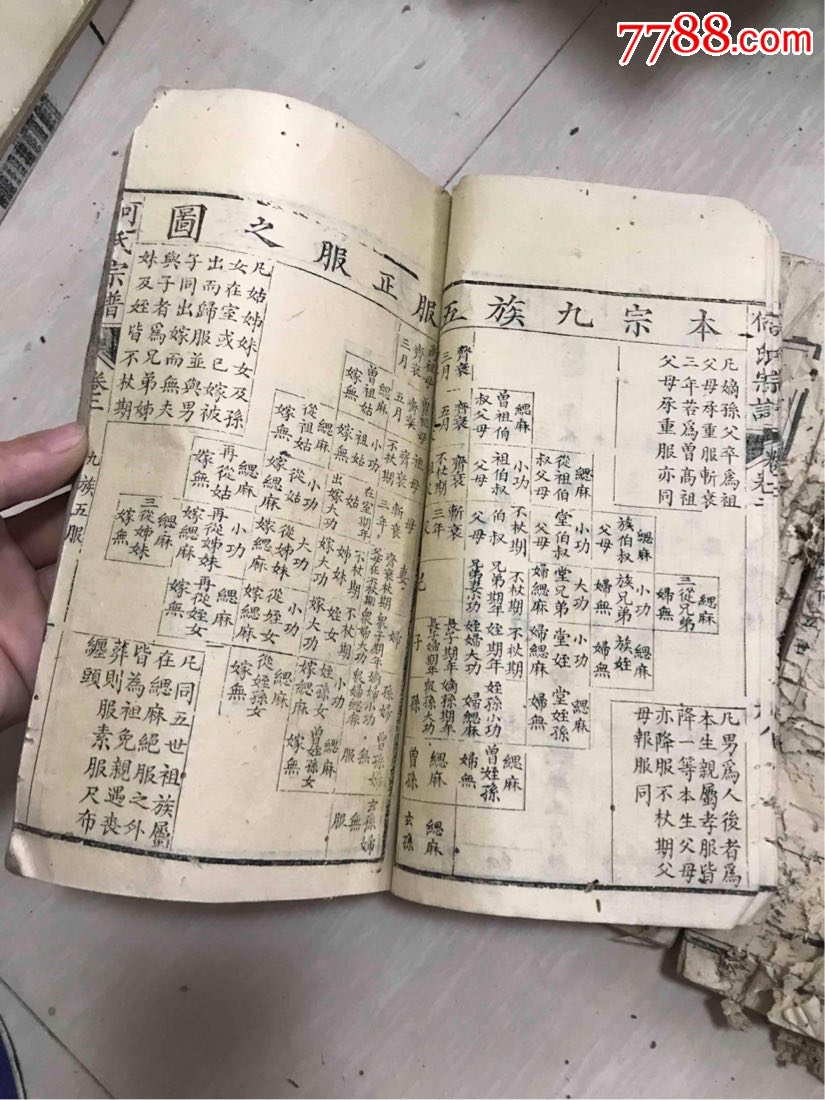 7788.com
本宗九族五服正服之圖
凡嫡孫父卒為祖
父母承重服斬衰
三年若為曾高祖
父母承重服亦同
凡男為人後者為
本生親屬孝服皆
降一等本生父母
亦降服不杖期父
母報服同
三從兄弟
緦麻
婦無
族伯叔
父母
緦麻
族兄弟
小功
婦無
族姪
緦麻
婦無
從祖伯
叔父母
緦麻
堂伯叔
父母
小功
堂兄弟
大功
婦緦麻
堂姪
小功
婦緦麻
堂姪孫
緦麻
婦無
曾祖伯
叔父母
緦麻
祖伯叔
父母
小功
伯叔
父母
不杖期
兄弟期年
不杖期
姪期年
不杖期
姪婦大功
姪孫小功
婦緦麻
曾姪孫
緦麻
婦無
齊衰
三月
齊衰
五月
齊衰
不杖期
斬衰
三年
己
長子期年
長子婦期年
眾子
嫡孫期年
眾孫大功
曾孫
緦麻
玄孫
緦麻
妻
齊衰杖期
父母在不杖期
婦
眾婦大功
孫婦
嫡婦小功
眾婦緦麻
曾孫婦
無服
玄孫婦
無服
曾祖姑
緦麻
嫁無
祖姑
小功
嫁緦麻
姑
在室期年
出嫁大功
姊妹
不杖期
嫁大功
姪女
不杖期
嫁大功
姪孫女
小功
嫁緦麻
曾姪孫女
緦麻
嫁無
從祖姑
緦麻
嫁無
從姑
小功
嫁緦麻
從姊妹
大功
嫁小功
從姪女
小功
嫁緦麻
從姪孫女
緦麻
嫁無
再從姑
緦麻
嫁無
再從姊妹
小功
嫁緦麻
再從姪女
緦麻
嫁無
三從姊妹
緦麻
嫁無
凡姑姊妹女及孫
女在室或已嫁被
出而歸服並與男
子同出嫁而無夫
與子者為兄弟姊
妹及姪皆不杖期
凡同五世祖族屬
在緦麻絕服之外
皆為祖免親遇喪
葬則服素服尺布
纏頭
何氏宗譜
卷二
九族五服